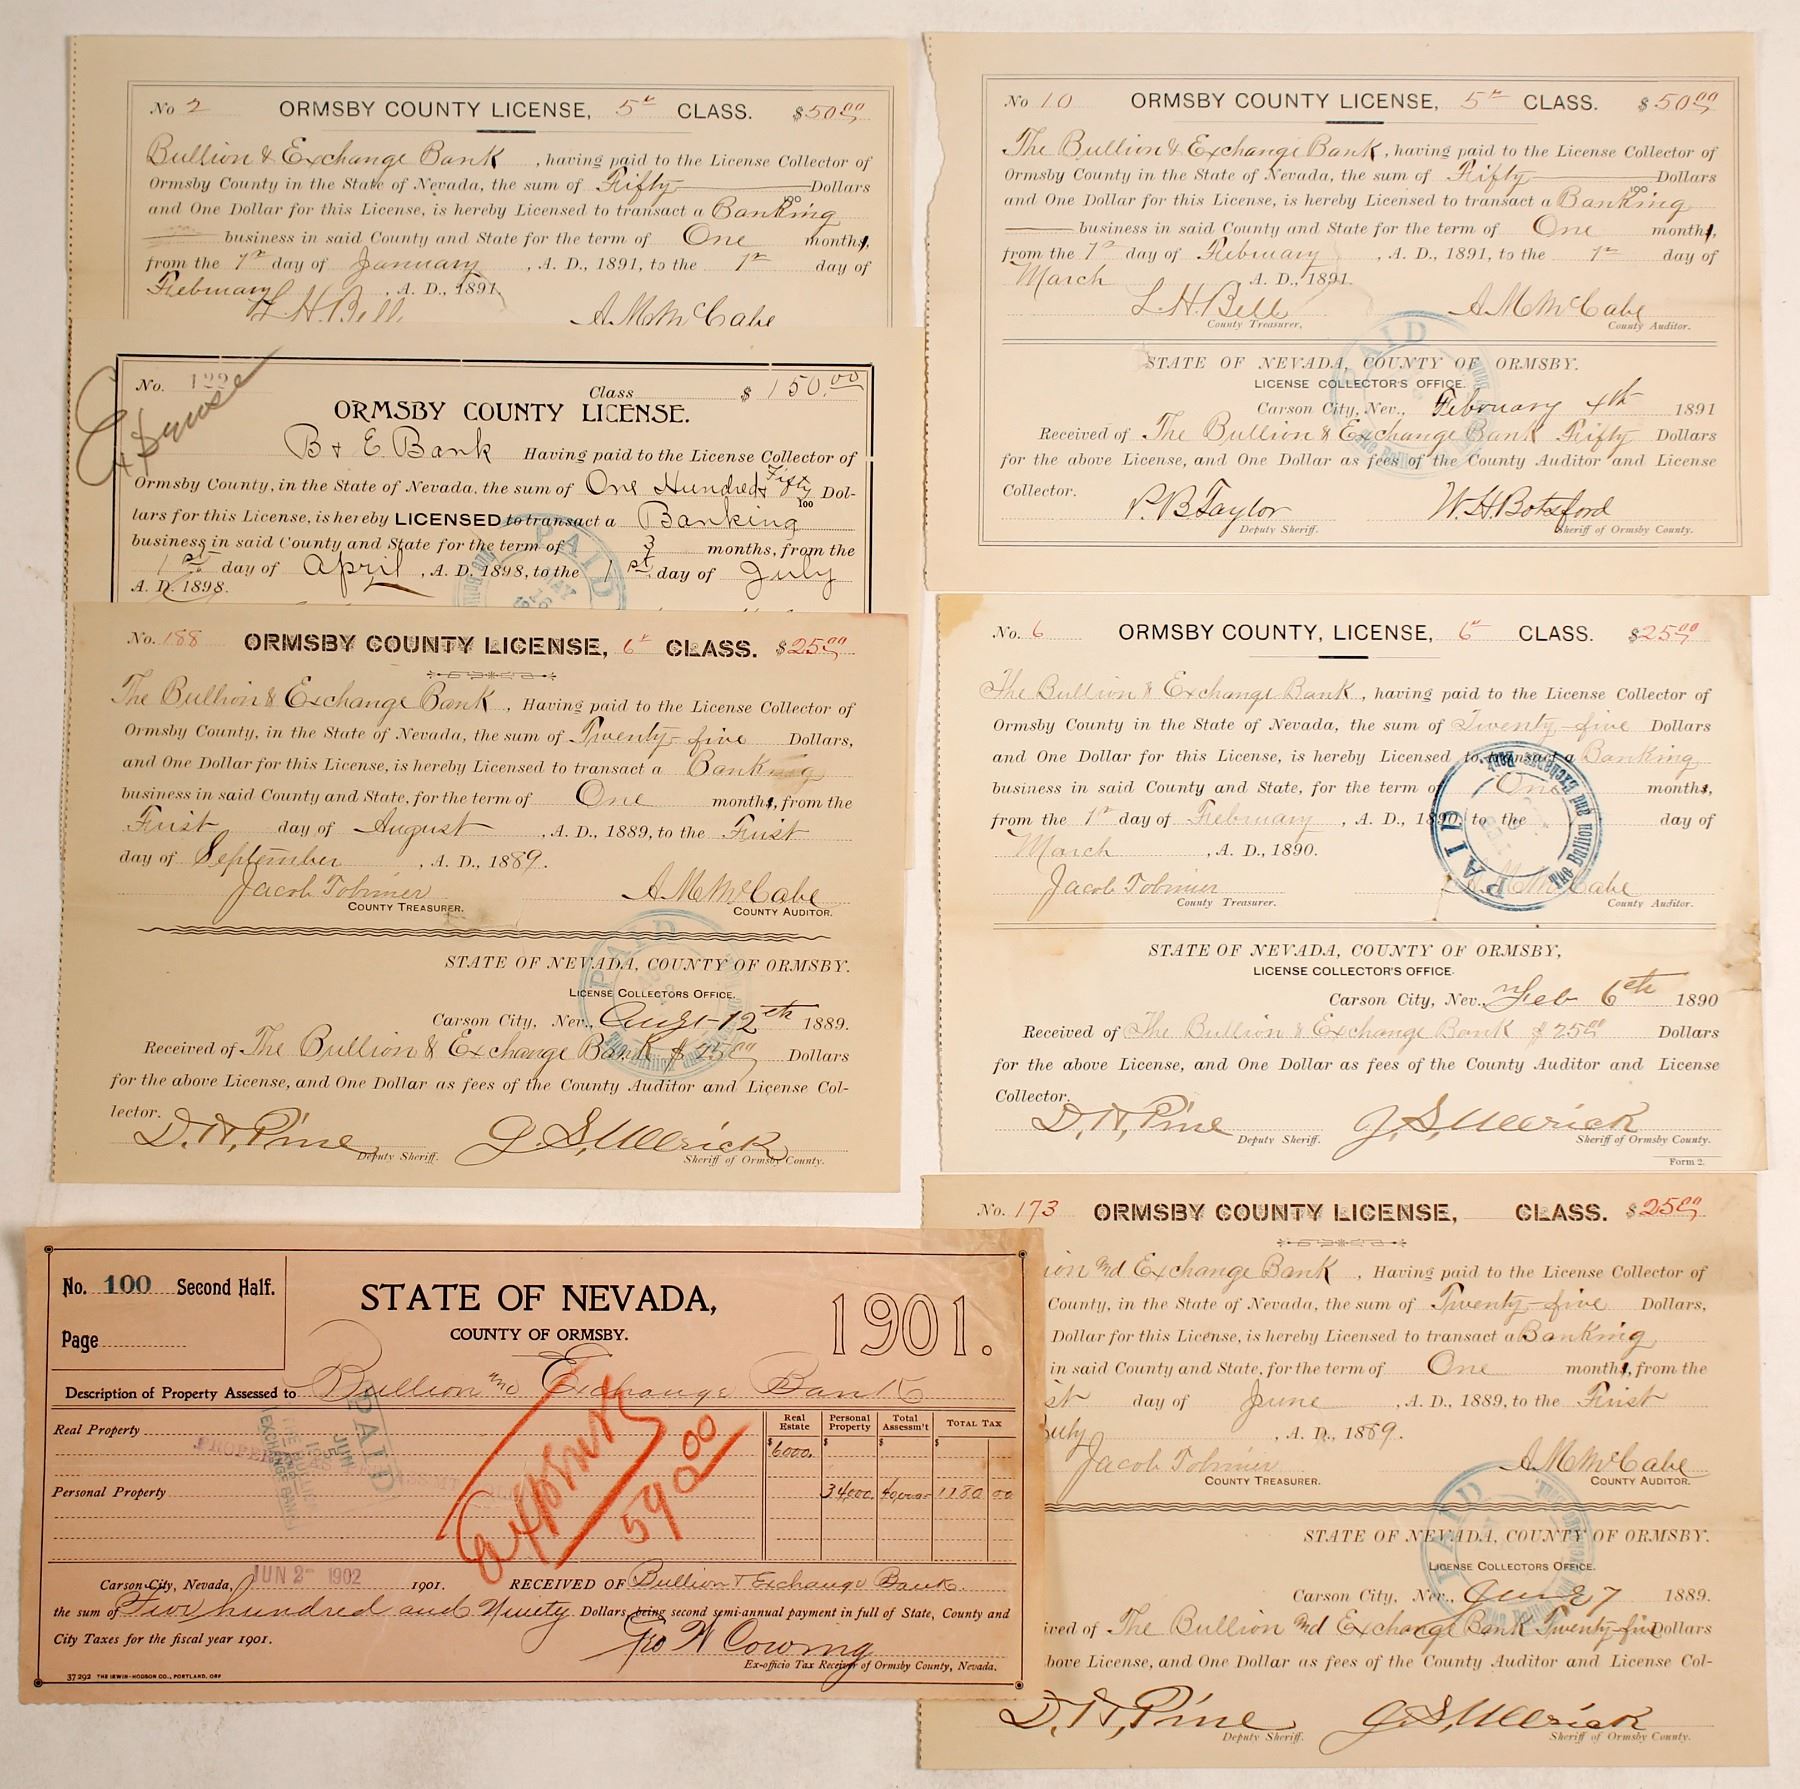 No 2 ORMSBY COUNTY LICENSE, 5th CLASS. $50.00
Bullion & Exchange Bank, having paid to the License Collector of
Ormsby County in the State of Nevada, the sum of Fifty Dollars
and One Dollar for this License, is hereby Licensed to transact a Banking
business in said County and State for the term of One month,
from the 1st day of January, A. D., 1891, to the 1st day of
February, A. D., 1891.
L. H. Bell A. M. McCabe
No. 122 Class $150.00
Expense
ORMSBY COUNTY LICENSE.
B & E Bank Having paid to the License Collector of
Ormsby County, in the State of Nevada, the sum of One Hundred & Fifty Dol-
lars for this License, is hereby LICENSED to transact a Banking
business in said County and State for the term of 3 months, from the
1st day of April, A. D. 1898, to the 1st day of July
A. D. 1898.
PAID
No. 188 ORMSBY COUNTY LICENSE, 6th CLASS. $25.00
The Bullion & Exchange Bank, Having paid to the License Collector of
Ormsby County, in the State of Nevada, the sum of Twenty-five Dollars,
and One Dollar for this License, is hereby Licensed to transact a Banking
business in said County and State, for the term of One month, from the
First day of August, A. D., 1889, to the First
day of September, A. D., 1889.
Jacob Tobriner A. M. McCabe
COUNTY TREASURER. COUNTY AUDITOR.
PAID
STATE OF NEVADA, COUNTY OF ORMSBY.
LICENSE COLLECTORS OFFICE.
Carson City, Nev., Augt 12th 1889.
Received of The Bullion & Exchange Bank $25.00 Dollars
for the above License, and One Dollar as fees of the County Auditor and License Col-
lector.
D. H. Pine J. S. Ullrick
Deputy Sheriff. Sheriff of Ormsby County.
No. 100 Second Half.
Page
STATE OF NEVADA,
COUNTY OF ORMSBY.
1901.
Description of Property Assessed to Bullion and Exchange Bank
Real Estate Personal Property Total Assessm't TOTAL TAX
Real Property $6000. $ $ $
Personal Property 34000. 40000- 1180 00
PAID
JUN
THE BULLION AND EXCHANGE BANK
590.00
Carson City, Nevada, JUN 2- 1902 1901. RECEIVED OF Bullion & Exchange Bank
the sum of Five hundred and Ninety Dollars, being second semi-annual payment in full of State, County and
City Taxes for the fiscal year 1901.
Geo W Cowing
Ex-officio Tax Receiver of Ormsby County, Nevada.
37292 THE IRWIN-HODSON CO., PORTLAND, ORE
No 10 ORMSBY COUNTY LICENSE, 5th CLASS. $50.00
The Bullion & Exchange Bank, having paid to the License Collector of
Ormsby County in the State of Nevada, the sum of Fifty Dollars
and One Dollar for this License, is hereby Licensed to transact a Banking
business in said County and State for the term of One month,
from the 1st day of February, A. D., 1891, to the 1st day of
March A. D., 1891.
L. H. Bell A. M. McCabe
County Treasurer, County Auditor.
PAID
STATE OF NEVADA, COUNTY OF ORMSBY.
LICENSE COLLECTOR'S OFFICE.
Carson City, Nev., February 4th 1891
Received of The Bullion & Exchange Bank Fifty Dollars
for the above License, and One Dollar as fees of the County Auditor and License
Collector.
P. B. Taylor W. H. Botsford
Deputy Sheriff. Sheriff of Ormsby County.
No. 6 ORMSBY COUNTY, LICENSE, 6th CLASS. $25.00
The Bullion & Exchange Bank, having paid to the License Collector of
Ormsby County in the State of Nevada, the sum of Twenty-five Dollars
and One Dollar for this License, is hereby Licensed to transact a Banking
business in said County and State, for the term of One month,
from the 1st day of February, A. D., 1890, to the day of
March, A. D., 1890.
PAID
The Bullion and Exchange Bank
Jacob Tobriner A. M. McCabe
County Treasurer. County Auditor.
STATE OF NEVADA, COUNTY OF ORMSBY,
LICENSE COLLECTOR'S OFFICE.
Carson City, Nev., Feb 6th 1890
Received of The Bullion & Exchange Bank $25.00 Dollars
for the above License, and One Dollar as fees of the County Auditor and License
Collector.
D. H. Pine J. S. Ullrick
Deputy Sheriff. Sheriff of Ormsby County.
Form 2.
No. 173 ORMSBY COUNTY LICENSE, CLASS. $25.00
ion and Exchange Bank, Having paid to the License Collector of
County, in the State of Nevada, the sum of Twenty-five Dollars,
Dollar for this License, is hereby Licensed to transact a Banking
in said County and State, for the term of One month, from the
st day of June, A. D., 1889, to the First
July, A. D., 1889.
Jacob Tobriner A. M. McCabe
COUNTY TREASURER. COUNTY AUDITOR.
PAID
STATE OF NEVADA, COUNTY OF ORMSBY.
LICENSE COLLECTORS OFFICE.
Carson City, Nev., June 7 1889.
ived of The Bullion and Exchange Bank Twenty-five Dollars
bove License, and One Dollar as fees of the County Auditor and License Col-
D. H. Pine J. S. Ullrick
Deputy Sheriff. Sheriff of Ormsby County.